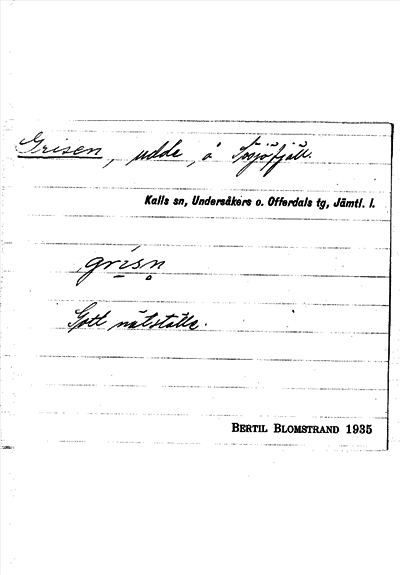 Grisen, udde, å Torsjöfjäll.
Kalls sn, Undersåkers o. Offerdals tg, Jämtl. l.
grisn̥
Gott nätställe.
BERTIL BLOMSTRAND 1935